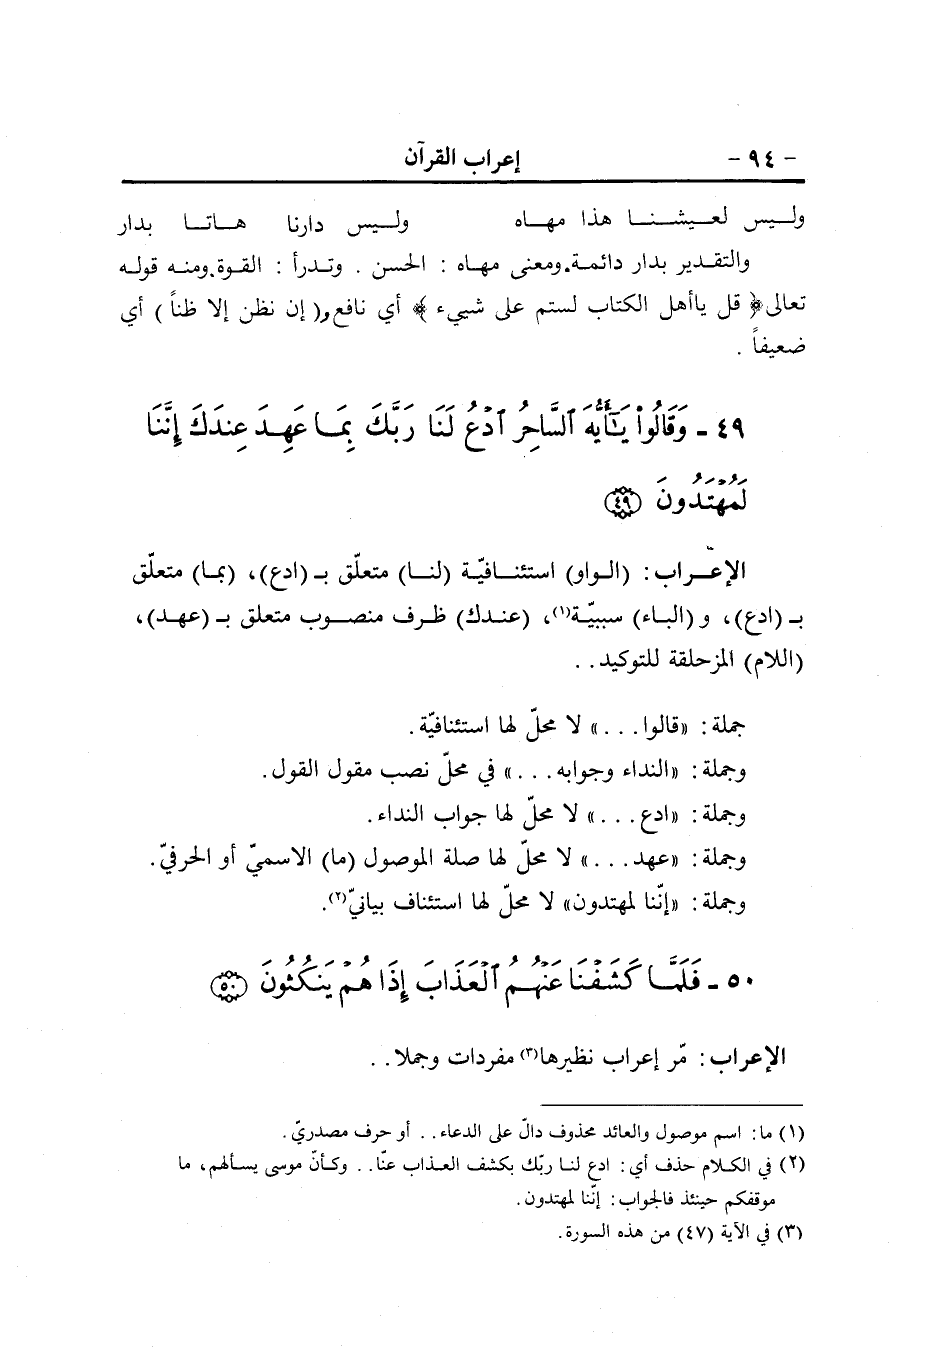 - ٩٤ - إعراب القرآن
وليس لعيشنا هذا مهاه وليس دارنا هاتا بدار
والتقدير بدار دائمة، ومعنى مهاه : الحسن . وتدرأ : القوة، ومنه قوله
تعالى ﴿ قل ياأهل الكتاب لستم على شيىء ﴾ أي نافع، و( إن نظن إلا ظناً ) أي
ضعيفاً .
٤٩ - وَقَالُواْ يَٰٓأَيُّهَ ٱلسَّاحِرُ ٱدْعُ لَنَا رَبَّكَ بِمَا عَهِدَ عِندَكَ إِنَّنَا
لَمُهْتَدُونَ ﴿٤٩﴾
الإعراب : (الواو) استئنافيّة (لنا) متعلّق بـ (ادع)، (بما) متعلّق
بـ (ادع)، و (الباء) سببيّة(١)، (عندك) ظرف منصوب متعلق بـ (عهد)،
(اللام) المزحلقة للتوكيد . .
جملة : «قالوا . . .» لا محلّ لها استئنافيّة .
وجملة : «النداء وجوابه . . .» في محلّ نصب مقول القول .
وجملة : «ادع . . .» لا محلّ لها جواب النداء .
وجملة : «عهد . . .» لا محلّ لها صلة الموصول (ما) الاسميّ أو الحرفيّ .
وجملة : «إنّنا لمهتدون» لا محلّ لها استئناف بيانيّ(٢).
٥٠ - فَلَمَّا كَشَفْنَا عَنْهُمُ ٱلْعَذَابَ إِذَا هُمْ يَنكُثُونَ ﴿٥٠﴾
الإعراب : مّر إعراب نظيرها(٣) مفردات وجملا . .
(١) ما : اسم موصول والعائد محذوف دالّ على الدعاء . . أو حرف مصدريّ .
(٢) في الكلام حذف أي : ادع لنا ربّك بكشف العذاب عنّا . . وكأنّ موسى يسألهم، ما
موقفكم حينئذ فالجواب : إنّنا لمهتدون .
(٣) في الآية (٤٧) من هذه السورة .